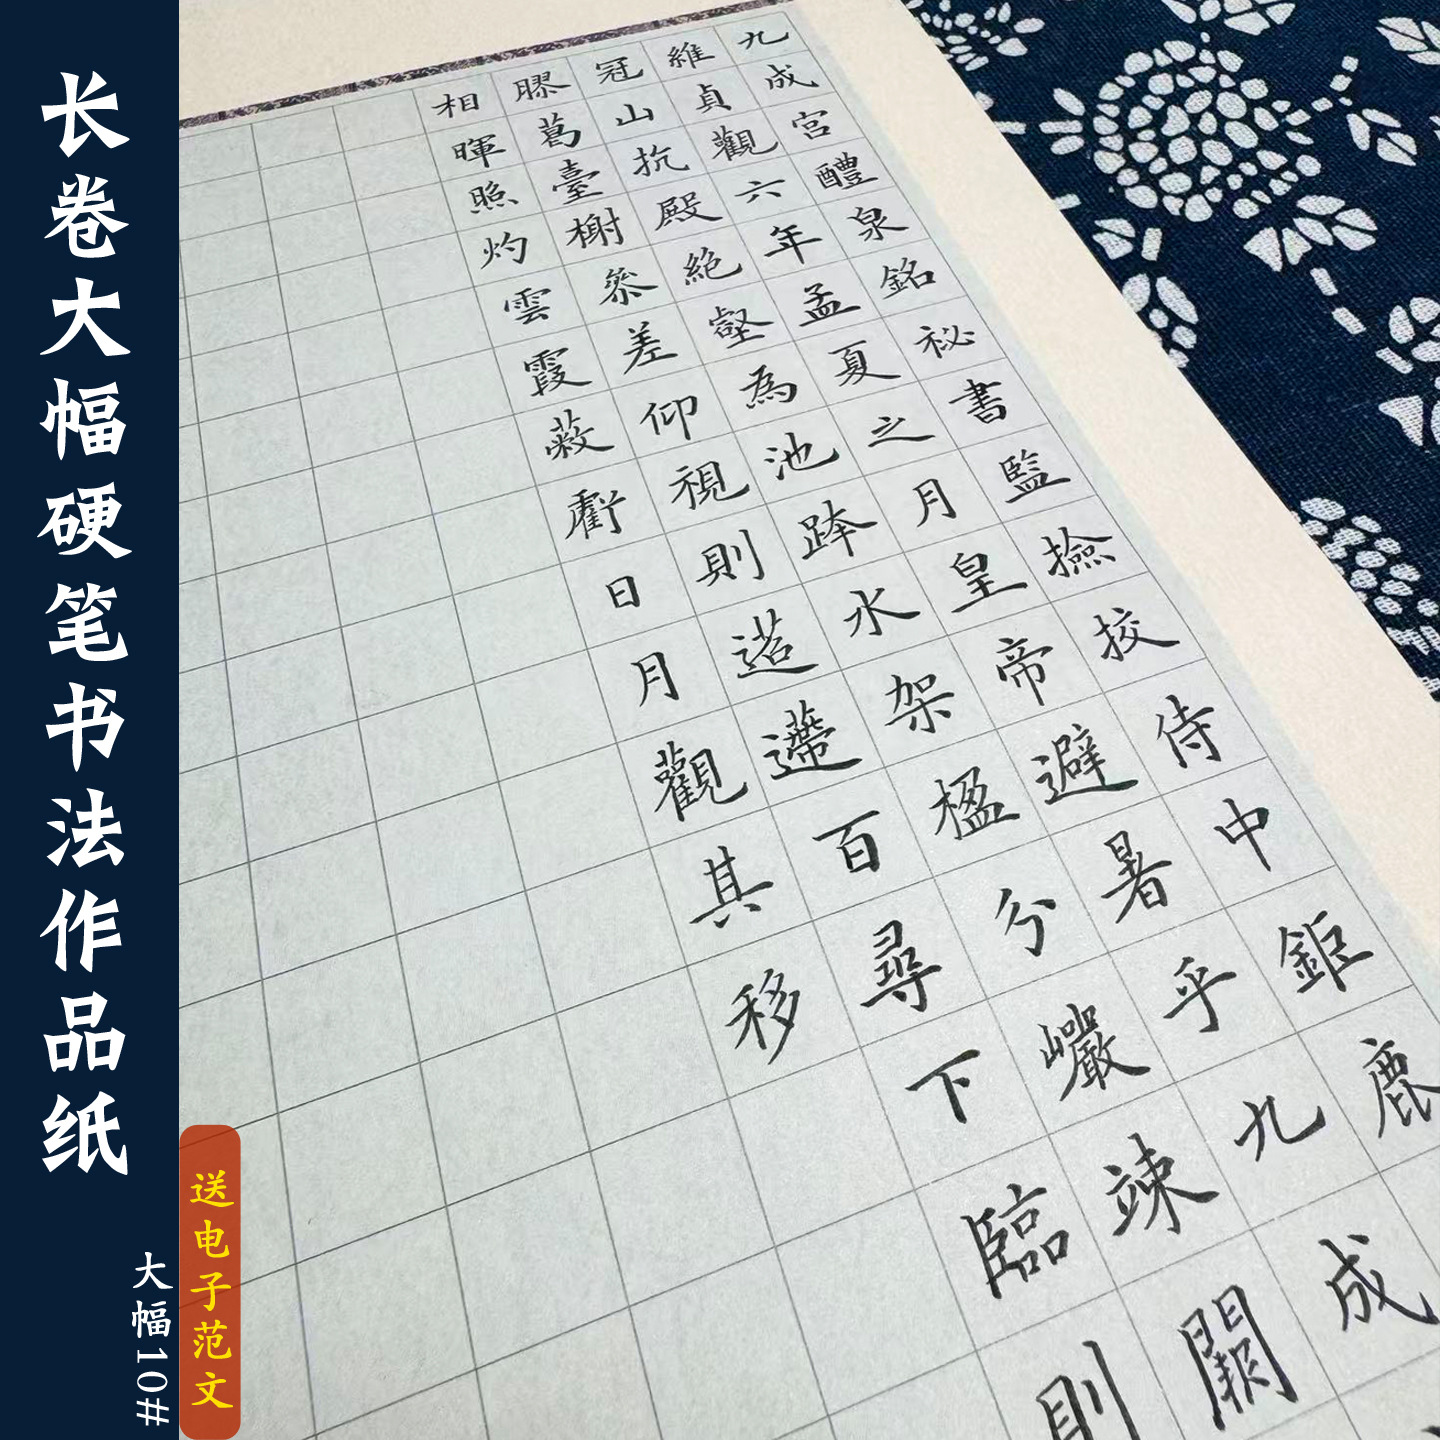 长卷大幅硬笔书法作品纸
大幅10#
送电子范文
九成宮醴泉銘秘書監撿挍侍中鉅鹿
維貞觀六年孟夏之月皇帝避暑乎九成
冠山抗殿絶壑為池跨水架楹分巗竦闕
膠葛臺榭參差仰視則迢遰百尋下臨則
相暉照灼雲霞蔽虧日月觀其移